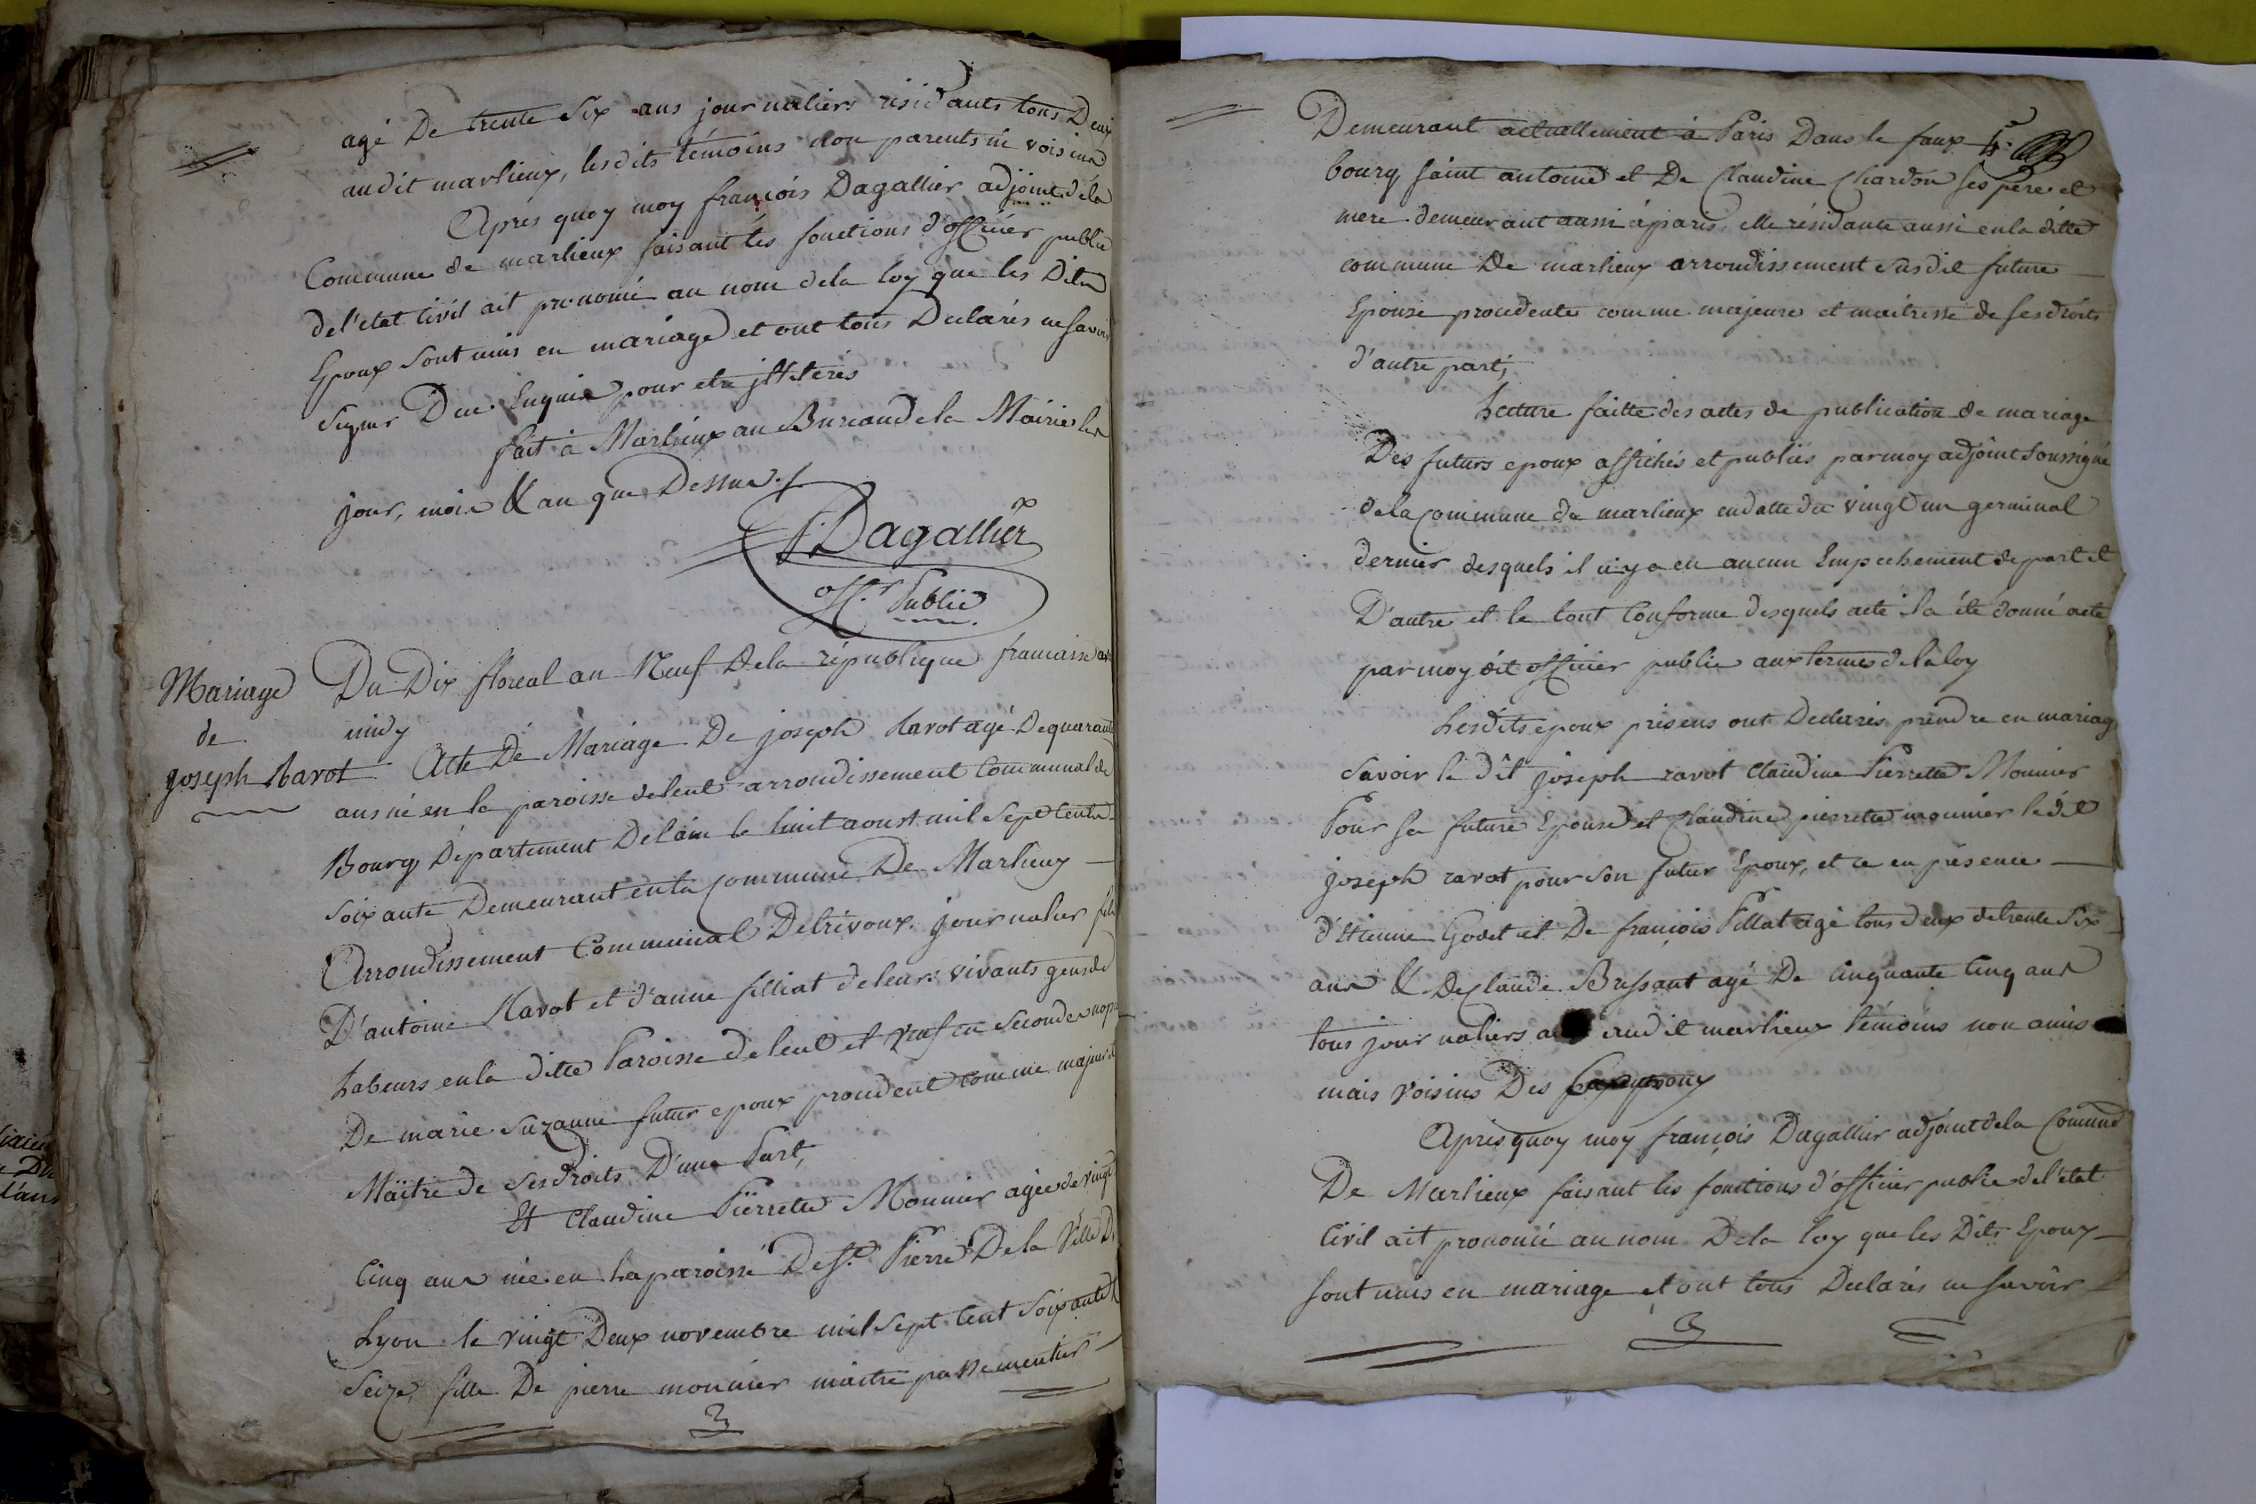 agé De trente Six ans journaliers résidants tous Deux
audit marlieux, lesdits témoins non parents ni voisins
Après quoy moy françois Dagallier adjoint dela
Commune de marlieux faisant les fonctions d'officier public
del'etat Civil ait prononcé au nom dela loy que les Dits
Epoux Sont unis en mariage et ont tous Declarés ne savoir
Signer De ce Enquis pour etre jlliterés
fait à Marlieux au Bureau dela Mairie les
jour, mois & an que Dessus ./.
Dagallier
off.r Public
Mariage
de
joseph Ravot
Du Dix floreal an Neuf Dela république francaise
midy
Acte De Mariage De joseph Ravot agé De quarante
ans né en la paroisse deleut arrondissement Communal de
Bourg Département Delain le huit aoust mil Sept Cents
Soixante Demeurant en la Commune De Marlieux
Arrondissement Communal Detrivoux. journalier fils
D'antoine Ravot et d'anne filliat deleurs vivants gens de
Labeurs enla ditte Paroisse deleut et veuf en Secondes nopces
De marie Suzanne futur epoux procedent comme majeur et
Maitre de Ses droits D'une Part,
Et Claudine Pierrette Monnier agée de vingt
Cinq ans née en la paroisse De St. Pierre De la Ville De
Lyon le vingt Deux novembre mil Sept Cent Soixante
Seize, fille De pierre monnier maitre passementier
Demeurant actuellement à Paris Dans le faux
bourg saint antoine et De Claudine Chardon ses père et
mere demeurant aussi à paris, elle résidante aussi en la ditte
commune De marlieux arrondissement susdit future
Epouse procedente comme majeure et maitresse de ses droits
d'autre part,
Lecture faitte des actes de publication de mariage
Des futurs epoux affichés et publiés par moy adjoint Soussigné
dela Commune de marlieux en datte du vingt un germinal
dernier desquels il n'y a eu aucun Empechement de part et
D'autre et le tout Conforme desquels acte il a été donné acte
par moy dit officier public aux termes dela loy
Lesdits epoux présens ont Declarés prendre en mariage
Savoir le dit joseph ravot Claudine Pierrette Monnier
Pour sa future Epouse et Claudine pierrette monnier le dit
joseph ravot pour Son futur Epoux, et ce en présence
d'Etienne Godet et De françois Pillat agé tous deux de trente Six
ans & De Claude Bressant agé De Cinquante Cinq ans
tous journaliers audit marlieux témoins non amis
mais voisins Des
Après quoy moy françois Dagallier adjoint dela Commune
De Marlieux faisant les fonctions d'officier public del'etat
Civil ait prononcé au nom Dela loy que les Dits Epoux
sont unis en mariage et ont tous Declarés ne savoir